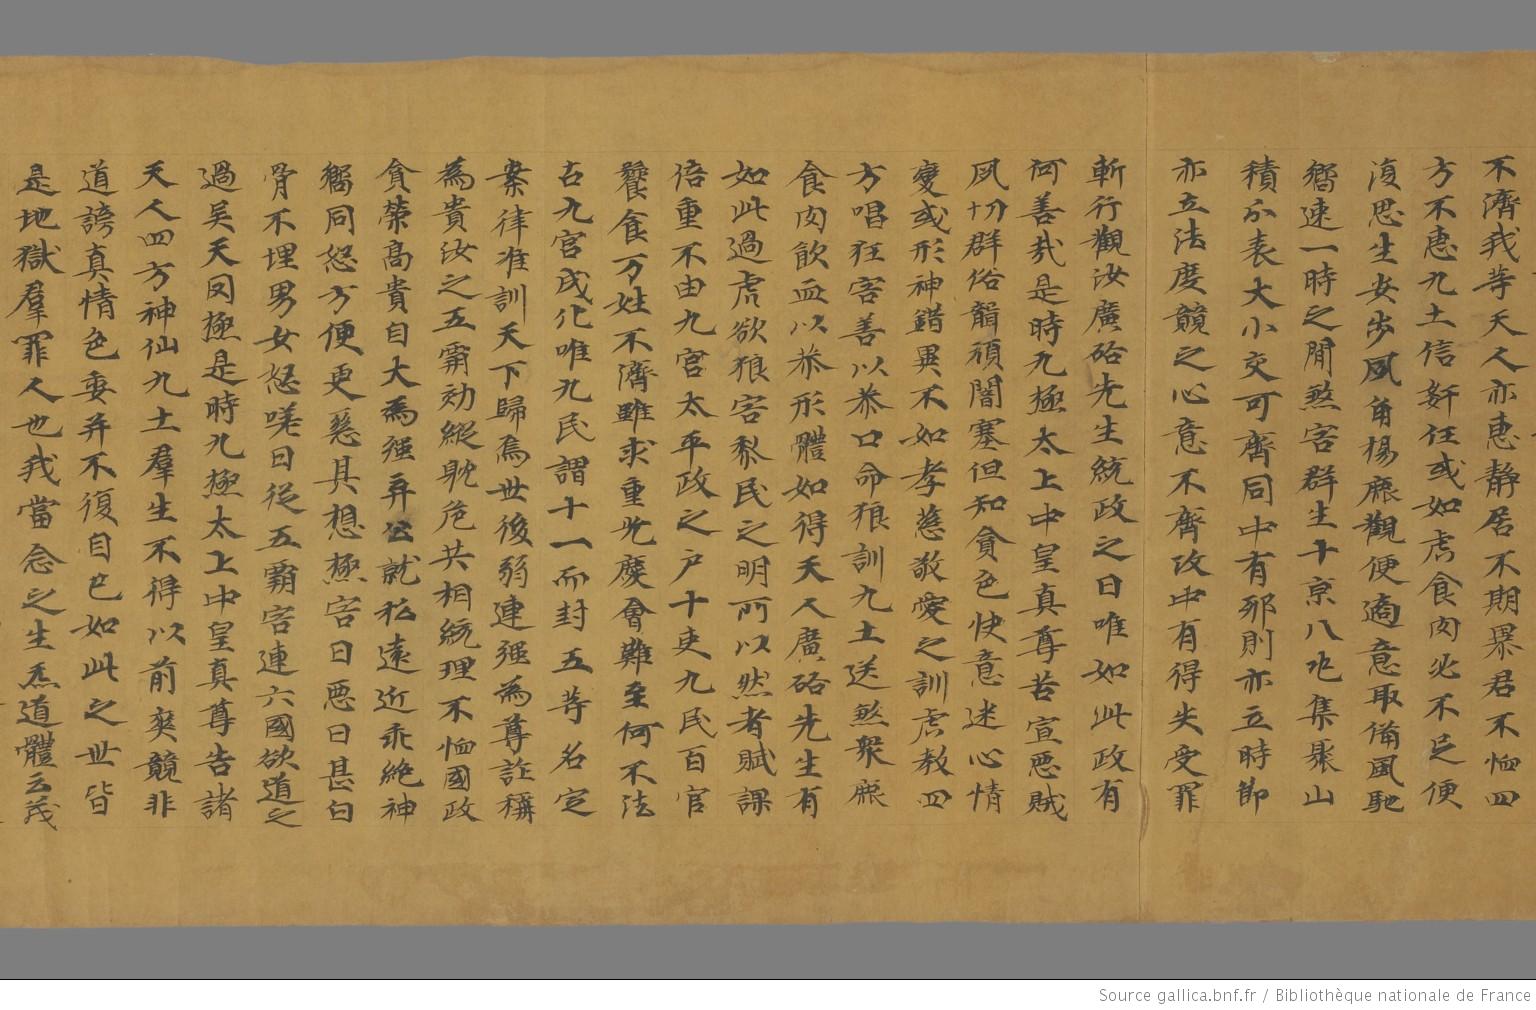 不濟我等天人亦惠靜居不期暴君不恤四
方不惠九土信姧任或如虎食肉必不足便
復思生女步風角楊麃觀便適意取備風馳
嚮速一時之間煞害群生千京八屯集聚山
積尒表大小交可齊同中有邪則亦立時節
亦立法度競之心意不齊攻中有得失受罪
斬行觀汝廣硌先生統政之日唯如此政有
何善㢤是時九極太上中皇真尊苦宣惡賊
夙切群俗聾頑闇塞但知貪色快意迷心情
變或形神錯異不如孝慈敬愛之訓虎教四
方唱狂害善以恭口命狼訓九土送煞衆麃
食肉飲血以恭形體如得天人廣硌先生有
如此過虎欲狼害黎民之明所以然者賦課
倍重不由九宮太平政之户十吏九民百官
饕食万姓不濟雖求重光麇會難至何不法
古九宮戍化唯九民謂十一而封五等名定
案律准訓天下歸焉世後弱連强為尊詐稱
為貴汝之五霸効縱耽危共相統理不恤國政
貪榮高貴自大為强弃公就私遠近乖絶神
嚮同怨方便更慈其想極害日惡日甚白
骨不埋男女怒嗟日從五霸害連六國欲道之
過吴天罔極是時九極太上中皇真尊告諸
天人四方神仙九土羣生不得以前爽競非
道謗真情色委弃不復自已如此之世皆
是地獄羣罪人也我當念之生炁道體云茂
Source gallica.bnf.fr / Bibliothèque nationale de France